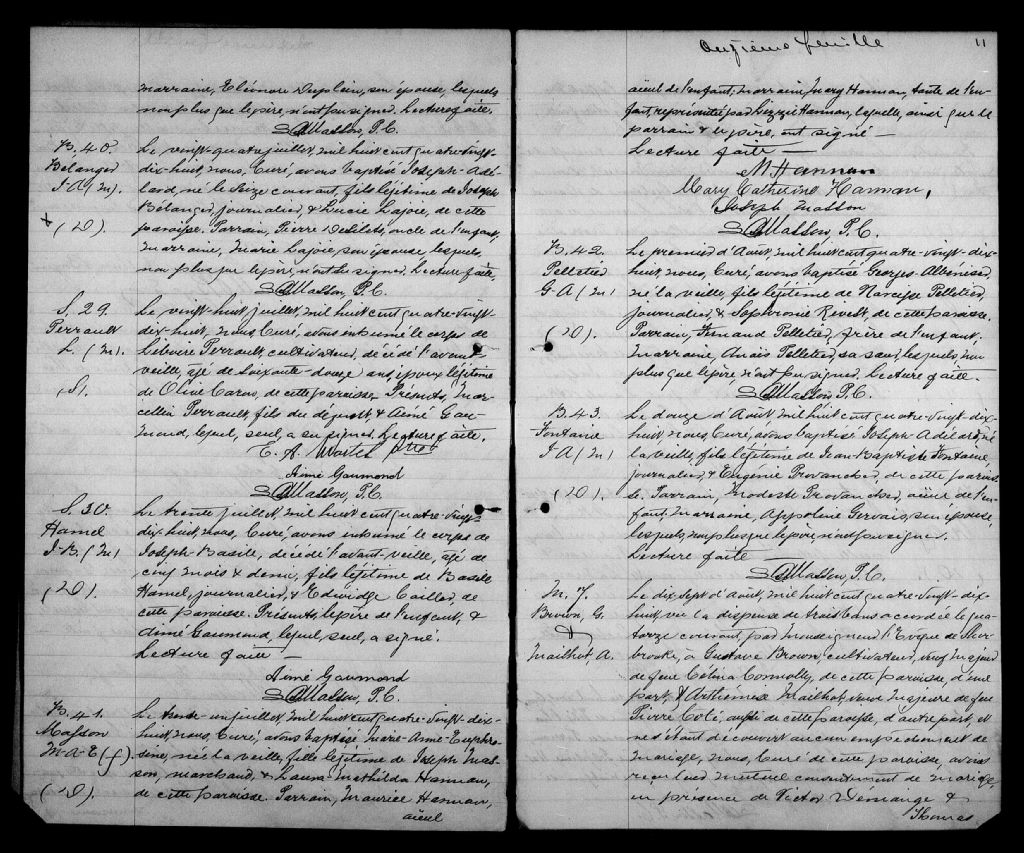 marraine, Eléonore Duplain, son épouse, lesquels
non plus que le père, n'ont pu signer. Lecture faite.
Masson, P.C.
B. 40.
Bélanger
J-A (m).
(D).
Le vingt-quatre juillet, mil huit cent quatre-vingt-
dix-huit, nous, Curé, avons baptisé Joseph-Adé-
lard, né le seize courant, fils légitime de Joseph
Bélanger, journalier, & Lucie Lajoie, de cette
paroisse. Parrain, Pierre Desilets, oncle de l'enfant,
marraine, Marie Lajoie, son épouse, lesquels,
non plus que le père, n'ont su signer. Lecture faite.
Masson, P.C.
S. 29.
Perrault
L. (m).
S1.
Le vingt-huit juillet, mil huit cent quatre-vingt-
dix-huit, nous Curé avons inhumé le corps de
Liboire Perrault, cultivateur, décédé l'avant-
veille, agé de soixante-douze ans, époux légitime
de Olive Caron, de cette paroisse. Présents, Mar-
cellin Perrault, fils du déposit & Aimé Gau-
mond, lequel, seul, a su signer. Lecture faite.
E. A.
Aimé Gaumond
Masson, P.C.
S. 30.
Hamel
J-B. (m)
(D).
Le trente juillet, mil huit cent quatre-vingt-
dix-huit, nous, Curé, avons inhumé le corps de
Joseph Basile, décédé l'avant-veille, agé de
cinq mois & demi, fils légitime de Basile
Hamel, journalier, & Edwidge Cailler, de
cette paroisse. Présents, le père de l'enfant, &
Aimé Gaumond, lequel, seul, a signé.
Lecture faite —
Aimé Gaumond
Masson, P.C.
B. 41.
Masson
M-A-E (f).
(D).
Le trente-un juillet, mil huit cent quatre-vingt-dix-
huit, nous, Curé, avons baptisé Marie-Anne-Euphro-
sine, née la veille, fille légitime de Joseph Mas-
son, marchand, & Laura Mathilda Hannan,
de cette paroisse. Parrain, Maurice Hannan,
aïeul
Onzième feuille
11
aïeul de l'enfant, marraine, Mary Hannan, tante de l'en-
fant, représentée par Lizzie Hannan, laquelle, ainsi que le
parrain & le père, ont signé —
Lecture faite —
M. Hannan
Mary Catherine Hannan,
Joseph Masson
Masson, P.C.
B. 42.
Pelletier
G-A (m)
(D).
Le premier d'Août, mil huit cent quatre-vingt-dix-
huit, nous, Curé, avons baptisé Georges-Albénise,
né la veille, fils légitime de Narcisse Pelletier,
journalier, & Sophronie Revett, de cette paroisse.
Parrain, Armand Pelletier, frère de l'enfant,
marraine, Anaïs Pelletier, sa sœur, lesquels, non
plus que le père, n'ont pu signer. Lecture faite.
Masson, P.C.
B. 43.
Fontaine
J-A (m)
(D).
Le douze d'Août, mil huit cent quatre-vingt-dix-
huit, nous, Curé, avons baptisé Joseph-Adélard, né
la veille, fils légitime de Jean-Baptiste Fontaine,
journalier, & Eugénie Provancher, de cette parois-
se. Parrain, Modeste Provancher, aïeul de l'en-
fant, marraine, Appoline Gervais, son épouse,
lesquels, non plus que le père n'ont pu signer.
Lecture faite —
Masson, P.C.
M. 7.
Brown, G.
&
Mailhot A.
Le dix-sept d'Août, mil huit cent quatre-vingt-dix-
huit, vu la dispense de trois bans accordée le qua-
torze courant, par Monseigneur l'Evêque de Sher-
brooke, à Gustave Brown, cultivateur, veuf majeur
de feue Célina Connolly, de cette paroisse, d'une
part, & Arthémise Mailhot, veuve majeure de feu
Pierre Coté, aussi de cette paroisse, d'autre part, et
ne s'étant découvert aucun empêchement de
mariage, nous, Curé de cette paroisse, avons
reçu leur mutuel consentement de mariage,
en présence de Victor Démange &
Thomas